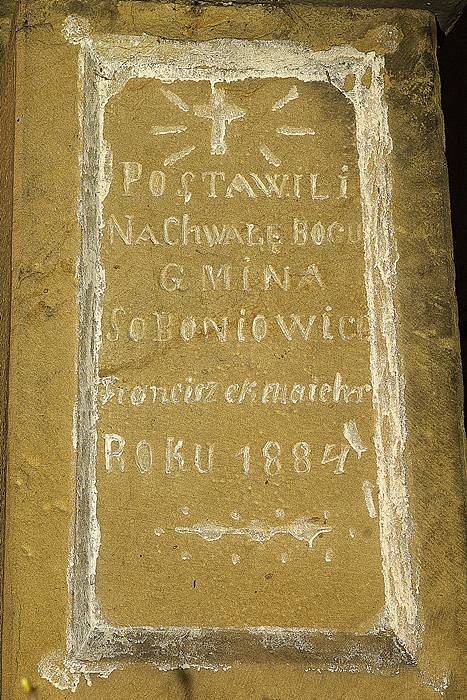 POSTAWILI
NA CHWAŁĘ BOGU
GMINA
SOBONIOWICE
Franciszek
ROKU 1884